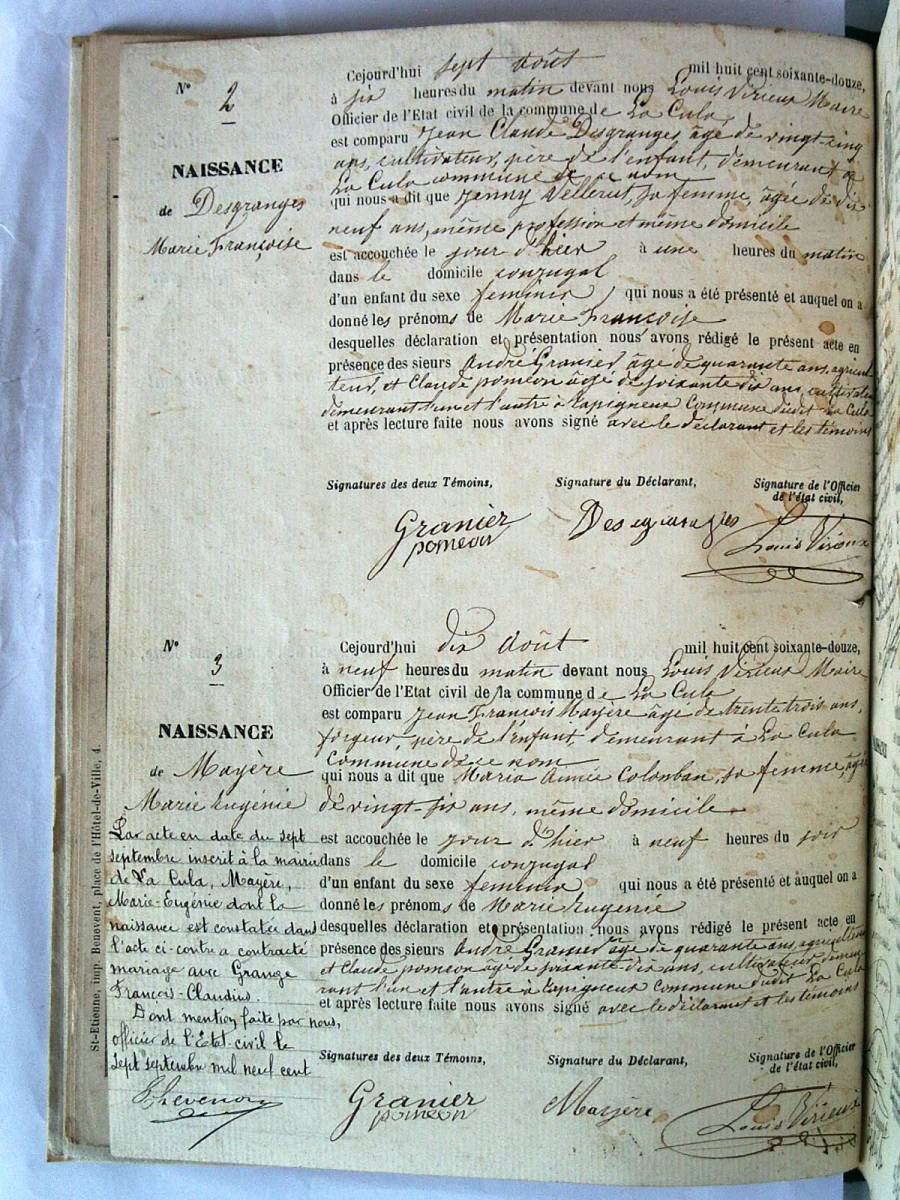 N° 2
NAISSANCE
de Desgranges
Marie Françoise
Cejourd'hui sept août mil huit cent soixante-douze,
à six heures du matin devant nous Louis Virieux Maire
Officier de l'Etat civil de la commune de La Cula
est comparu Jean Claude Desgranges âgé de vingt-cinq
ans, cultivateur, père de l'enfant, demeurant à
La Cula commune de ce nom
qui nous a dit que Jenny Vellerut, sa femme, âgée de dix
neuf ans, même profession et même domicile
est accouchée le jour d'hier à une heures du matin
dans le domicile conjugal
d'un enfant du sexe feminin qui nous a été présenté et auquel on a
donné les prénoms de Marie Françoise
desquelles déclaration et présentation nous avons rédigé le présent acte en
présence des sieurs André Granier, âgé de quarante ans, agricul
teur, et Claude poméon âgé de soixante dix ans, cultivateur
demeurant l'un et l'autre à Lapigneux Commune dudit La Cula
et après lecture faite nous avons signé avec le déclarant et les témoins
Signatures des deux Témoins, Signature du Déclarant, Signature de l'Officier
de l'état civil,
Granier Desgranges
pomeon Louis Virieux
N° 3
NAISSANCE
de Mayère
Marie Eugénie
Par acte en date du sept
septembre inscrit à la mairie
de La Cula, Mayère,
Marie-Eugénie dont la
naissance est constatée dans
l'acte ci-contre a contracté
mariage avec Grange
François-Claudius.
Dont mention faite par nous,
officier de l'Etat-civil le
sept septembre mil neuf cent
Thevenon
Cejourd'hui dix août mil huit cent soixante-douze,
à neuf heures du matin devant nous Louis Virieux Maire
Officier de l'Etat civil de la commune de La Cula
est comparu Jean François Mayère âgé de trente trois ans,
forgeur, père de l'enfant, demeurant à La Cula
Commune de ce nom
qui nous a dit que Maria Aimée Colomban, sa femme, âgée
de vingt-six ans, même domicile
est accouchée le jour d'hier à neuf heures du soir
dans le domicile conjugal
d'un enfant du sexe feminin qui nous a été présenté et auquel on a
donné les prénoms de Marie Eugénie
desquelles déclaration et présentation nous avons rédigé le présent acte en
présence des sieurs André Granier âgé de quarante ans, agriculteur
et Claude pomeon âgé de soixante-dix ans, cultivateur demeu
rant l'un et l'autre à Lapigneux Commune dudit La Cula
et après lecture faite nous avons signé avec le déclarant et les témoins
Signatures des deux Témoins, Signature du Déclarant, Signature de l'Officier
de l'état civil,
Granier Mayère
pomeon Louis Virieux
St-Etienne, imp. Benevent, place de l'Hôtel-de-Ville, 4.